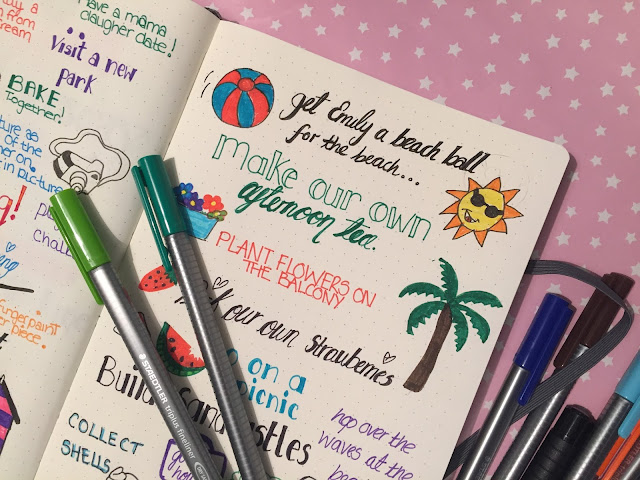 Have a mama
daugher date!
Visit a new
park
BAKE
Together!
of the
in picture
fingerpaint
piece.
get Emily a beach ball
for the beach...
make our own
afternoon tea.
PLANT FLOWERS ON
THE BALCONY
our own Strawberries
on a
picnic
Build
COLLECT
SHELLS
hop over the
waves at the
STAEDTLER triplus fineliner